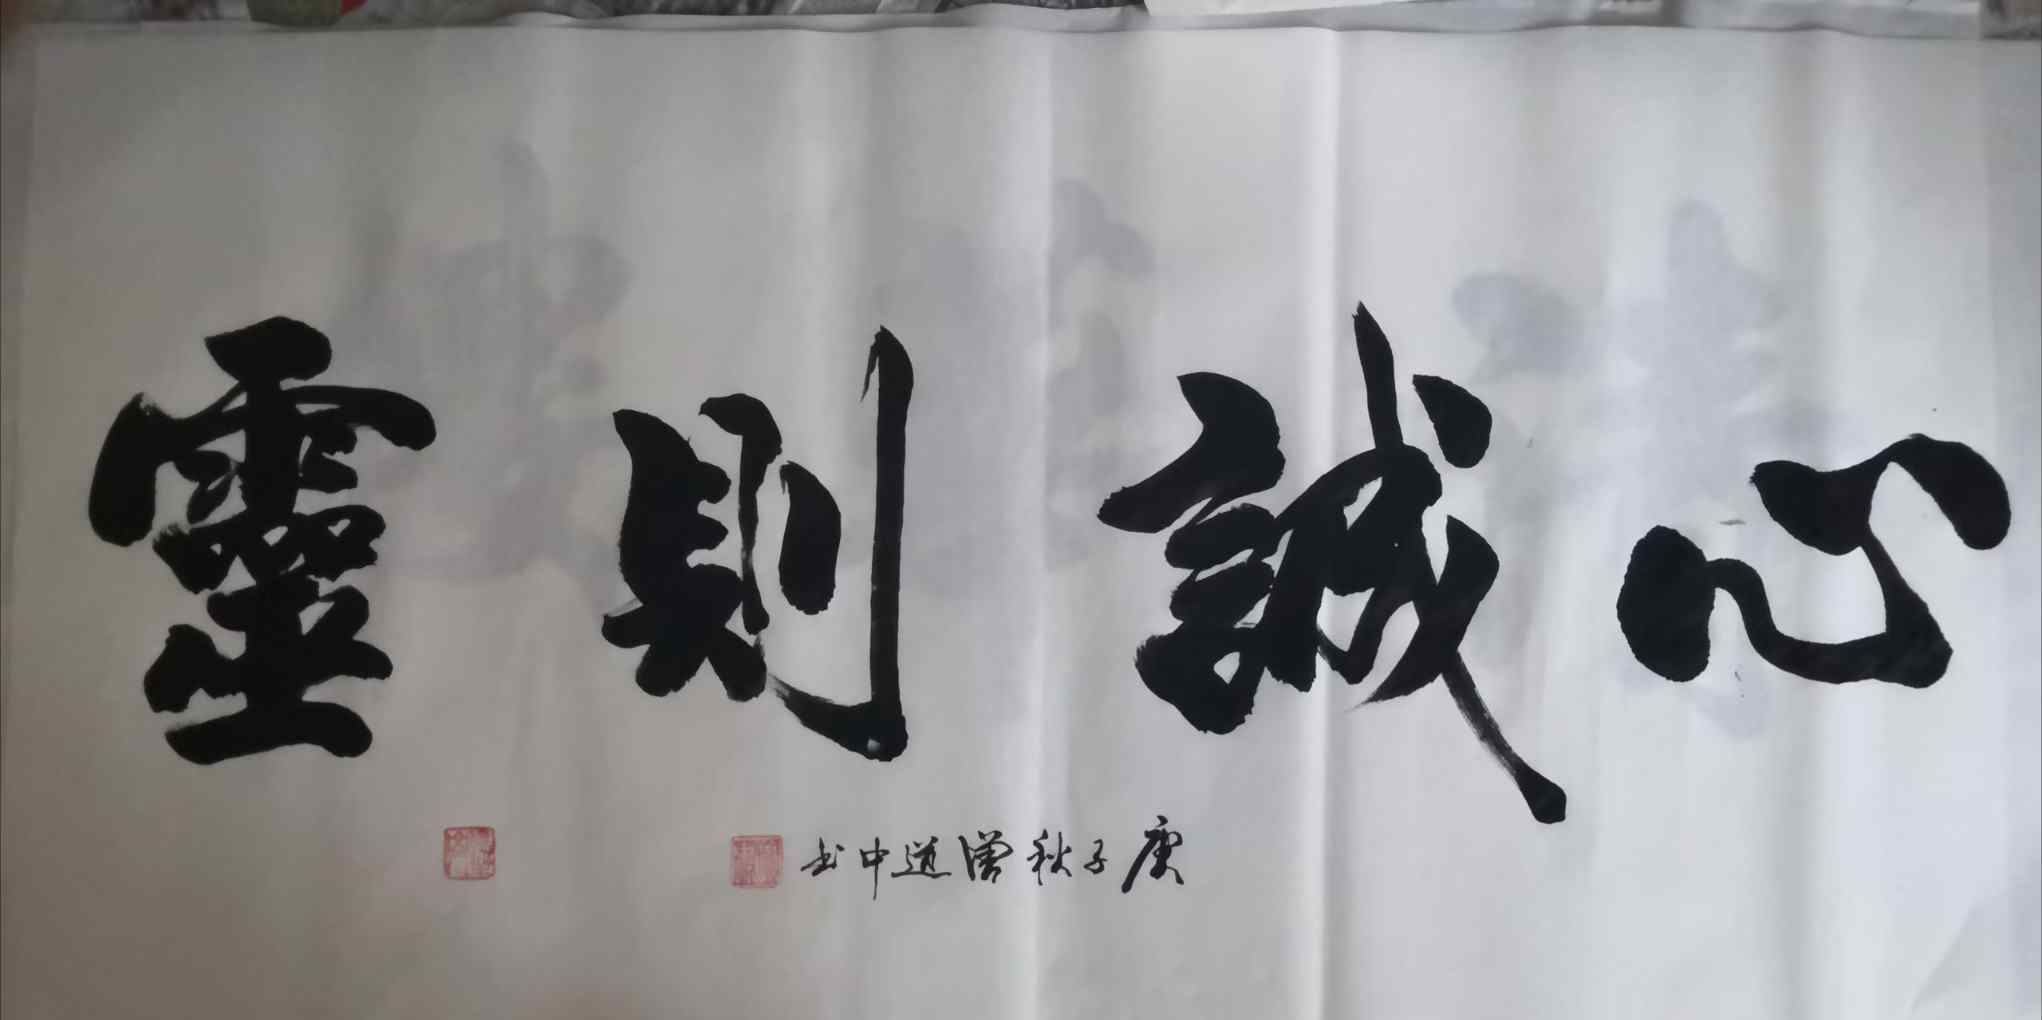 心誠則靈
庚子秋曾道中书